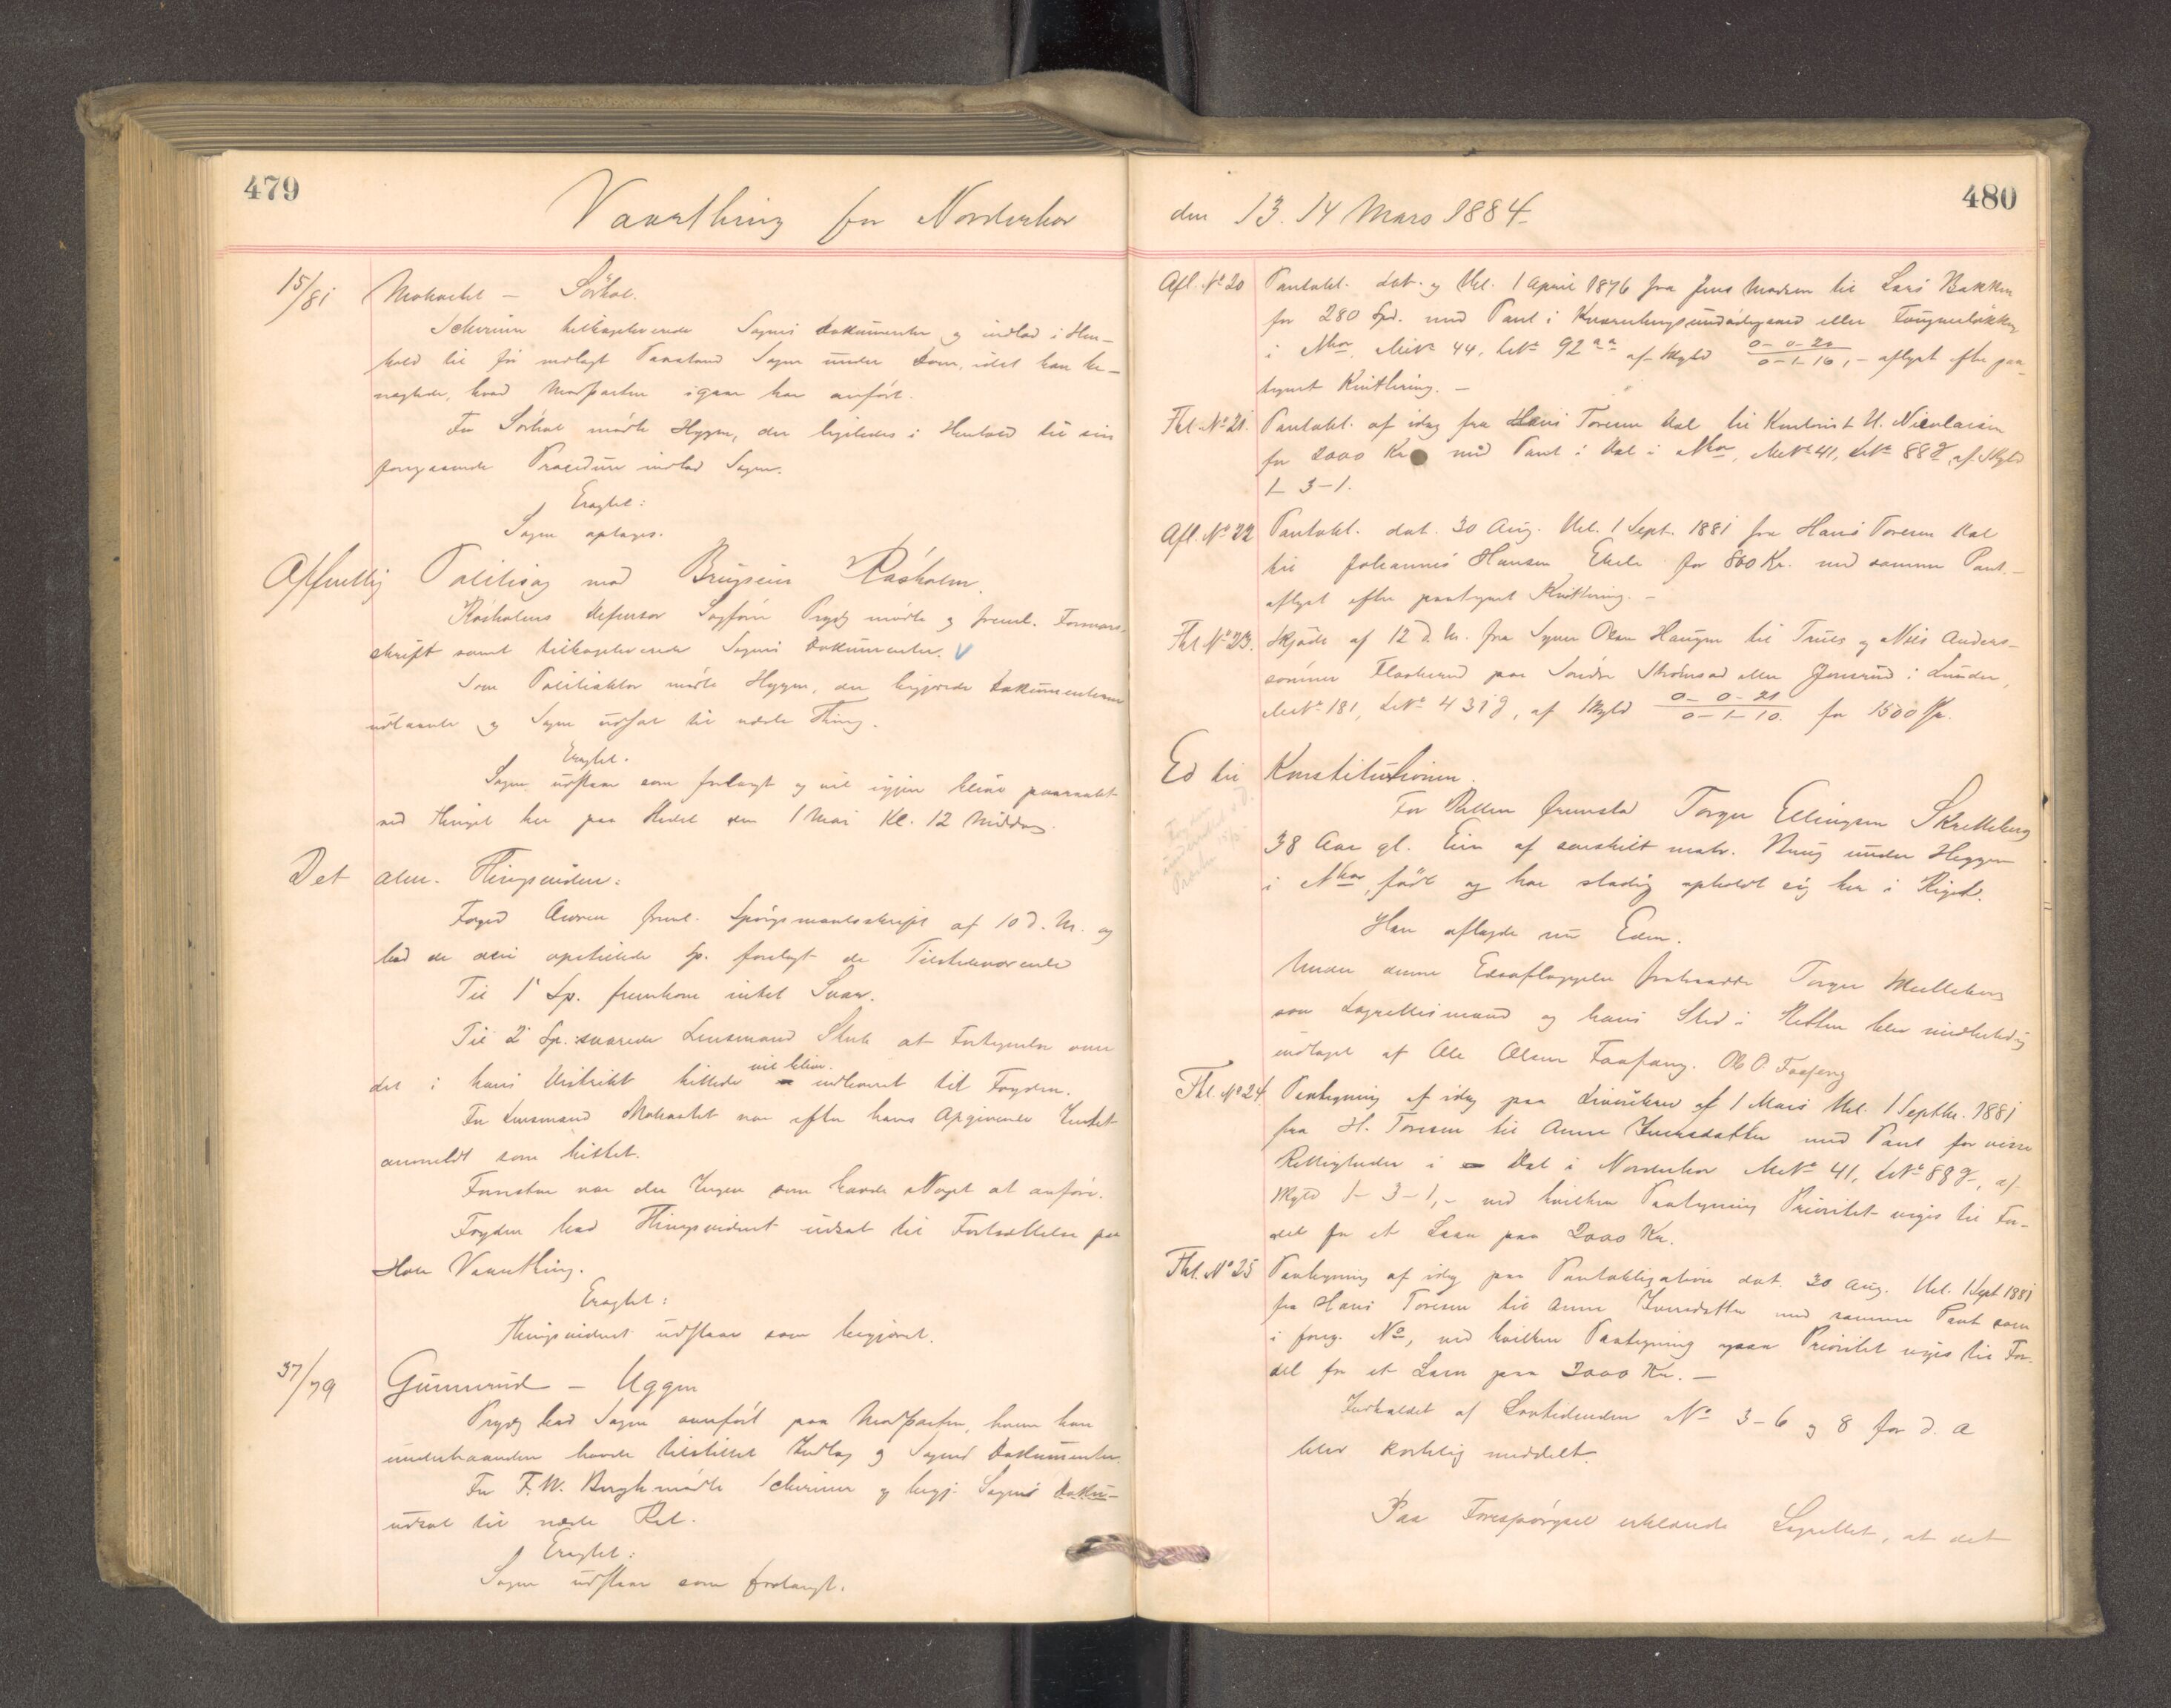 479
Vaarthing for Norderhov
15/81 Mohachel – Sörhol.
Schivim tilbageleverede Sagens Dokumenter og indlod i Hen-
hold til før nedlagt Paastand Sagen under Dom, idet han be-
nægtede, hvad Modparten igaar har anført.
For Sörhol mödte Hygen, der ligeledes i Henhold til sin
foregaaende Procedure indlod Sagen.
Eragtet:
Sagen optages.
Offentlig Politisag mod Brugseier Råsholm.
Råsholms Defensor Sagfører Prydz mödte og freml. Forsvars-
skrift samt tilbageleverede Sagens Dokumenter. V
Som Politiaktor mödte Hygen, der begjærede Dokumenterne
udlaante og Sagen udsat til næste Thing.
Eragtet.
Sagen udstaar som forlangt og vil igjen blive paaraabt
ved Thinget her paa Stedet den 1 Mai Kl. 12 Middag.
Det alm. Thingsvidne:
Foged freml. Spörgsmaalsskrift af 10 d. M. og
bad de deri opstillede Sp. forelagt de Tilstedeværende
Til 1 Sp. fremkom intet Svar.
Til 2 Sp. svarede Lensmand Stub at Fortegnelse over
vil blive
det i hans Distrikt hittede indleveret til Fogden.
For Lensmand Mohachel var efter hans Opgivende Intet
anmeldt som hittet.
Forøvrigt var der Ingen som havde Noget at anføre.
Fogden bad Thingsvidnet udsat til Fortsættelse paa
Hole Vaarthing.
Eragtet:
Thingsvidnet udstaar som begjæret.
37/79 Gunnerud – Uggen
Prydz bad Sagen anført paa Modparten, hvem han
underhaanden havde tilstillet Indlæg og Sagens Dokumenter.
For F. W. Bergh mödte Schivim og begj. Sagens Doku-
udsat til næste Ret.
Eragtet:
Sagen udstaar som forlangt.
480
den 13. 14 Mars 1884.
Afl. No 20 Pantobl. dat. og thl. 1 April 1876 fra Jens Madsen til Lars Bakken
for 280 Spd. med Pant i eller
i Nhov, MNo 44, LNo 92 aa af Skyld 0-0-20 / 0-1-10, – aflyst efter paa-
tegnet Kvittering. –
Thl. No 21. Pantobl. af idag fra Hans Toresen Dal til Kontorist U. Nicolaisen
for 2000 Kr med Pant i Dal i Nhov, MNo 41, LNo 88 g, af Skyld
1-3-1.
Afl. No 22 Pantobl. dat. 30 Aug. thl. 1 Sept. 1881 fra Hans Toresen Dal
til Johannes Hansen for 800 Kr. med samme Pant. –
aflyst efter paategnet Kvittering. –
Thl No 23. Skjøde af 12 d. M. fra Syver Olsen Haugen til Truls og Nils Anders-
sönner paa Söndre eller i Lunder,
MNo 181, LNo 431 g, af Skyld 0-0-21 / 0-1-10. for 1500 Kr.
Ed til Konstitutionen.
For Retten fremstod Torger Ellingsen Skretteberg
38 Aar gl. Eier af særskilt matr. Brug under Heggen
i Nhov, født og har stadig opholdt sig her i Riget.
Han aflagde nu Eden.
Under denne Edsaflæggelse fratraadte Torger
som Lagrettesmand og hans Sted i Retten blev midlertidig
indtaget af Ole Olsen Faafæng. Ole O. Faafæng
Thl. No 24. Paategning af idag paa af 1 Mars thl. 1 Septbr. 1881
fra H. Toresen til Anne Iversdatter med Pant for visse
Rettigheder i Dal i Norderhov MNo 41, LNo 88 g, af
Skyld 1-3-1, – ved hvilken Paategning Prioritet viges til For-
del for et Laan paa 2000 Kr.
Thl. No 25 Paategning af idag paa Pantobligation dat. 30 Aug. thl. 1 Sept 1881
fra Hans Toresen til Anne Iversdatter med samme Pant som
i foreg. No, ved hvilken Paategning ogsaa Prioritet viges til For-
del for et Laan paa 2000 Kr. –
Indholdet af Lovtidenden No 3-6 og 8 for d. A
blev kortelig meddelt.
Paa Forespörgsel erklærede Lagrettet, at det